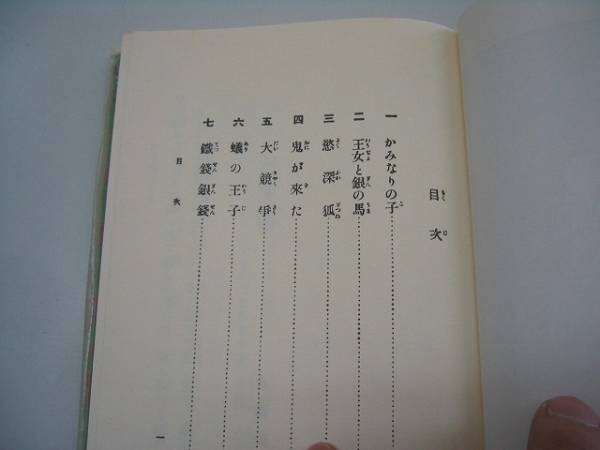 目次
一 かみなりの子
二 王女と銀の馬
三 慾深狐
四 鬼が来た
五 大競爭
六 蟻の王子
七 鐵錢銀錢
目次
一